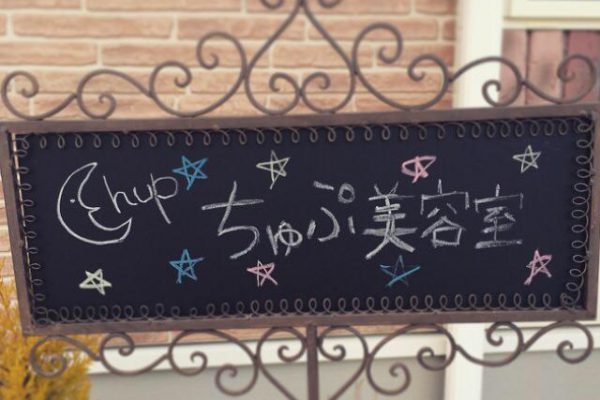 Chup
ちゅぷ美容室